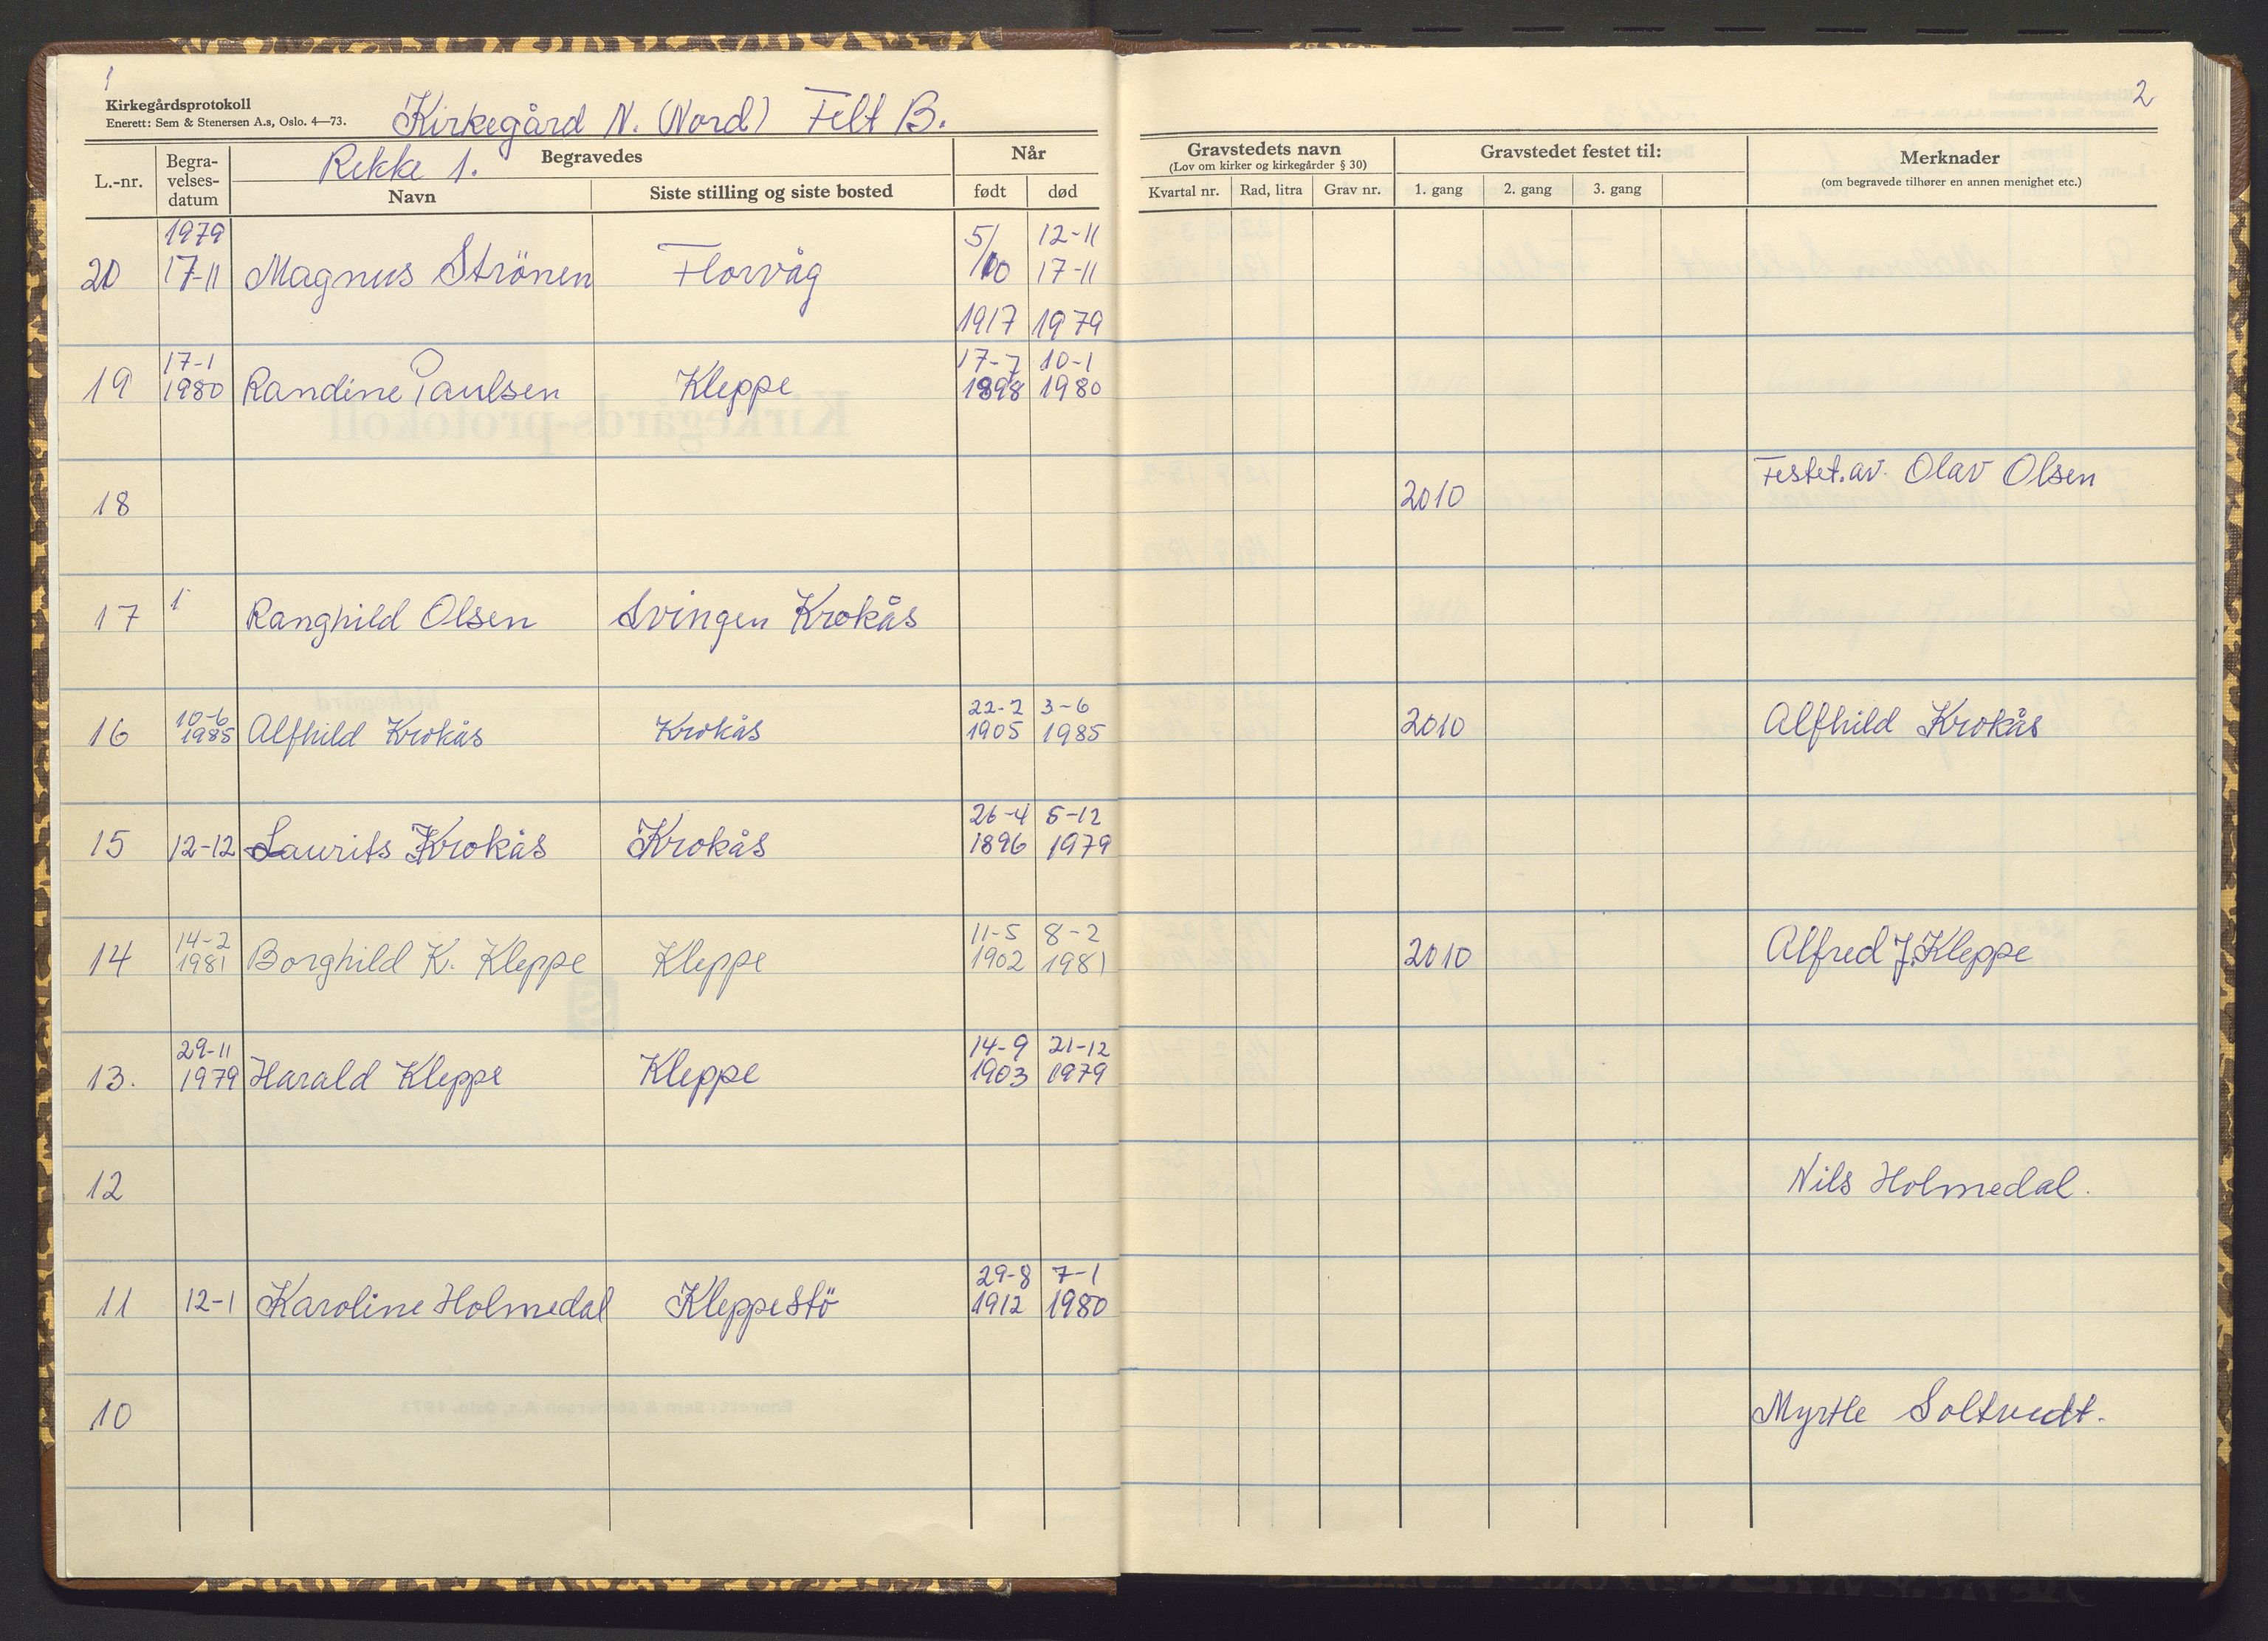 1
Kirkegårdsprotokoll
Enerett: Sem & Stenersen A.s, Oslo. 4—73.
Kirkegård N. (Nord) Felt B.
Rekke 1.
L.-nr.
Begra-
velses-
datum
Begravedes
Navn
Siste stilling og siste bosted
Når
født
død
1979
20 17-11 Magnus Strönen Florvåg 5/10 12-11
17-11
1917 1979
17-1 17-7 10-1
19 1980 Randine Paulsen Kleppe 1898 1980
18
17 1 Ranghild Olsen Svingen Krokås
10-6 22-2 3-6
16 1985 Alfhild Krokås Krokås 1905 1985
26-4 5-12
15 12-12 Laurits Krokås Krokås 1896 1979
14-2 11-5 8-2
14 1981 Borghild K. Kleppe Kleppe 1902 1981
29-11 14-9 21-12
13. 1979 Harald Kleppe Kleppe 1903 1979
12
29-8 7-1
11 12-1 Karoline Holmedal Kleppestö 1912 1980
10
2
Gravstedets navn
(Lov om kirker og kirkegårder § 30)
Kvartal nr. Rad, litra Grav nr.
Gravstedet festet til:
1. gang 2. gang 3. gang
Merknader
(om begravede tilhører en annen menighet etc.)
2010 Festet.av. Olav Olsen
2010 Alfhild Krokås
2010 Alfred J. Kleppe
Nils Holmedal.
Myrtle Soltvedt.